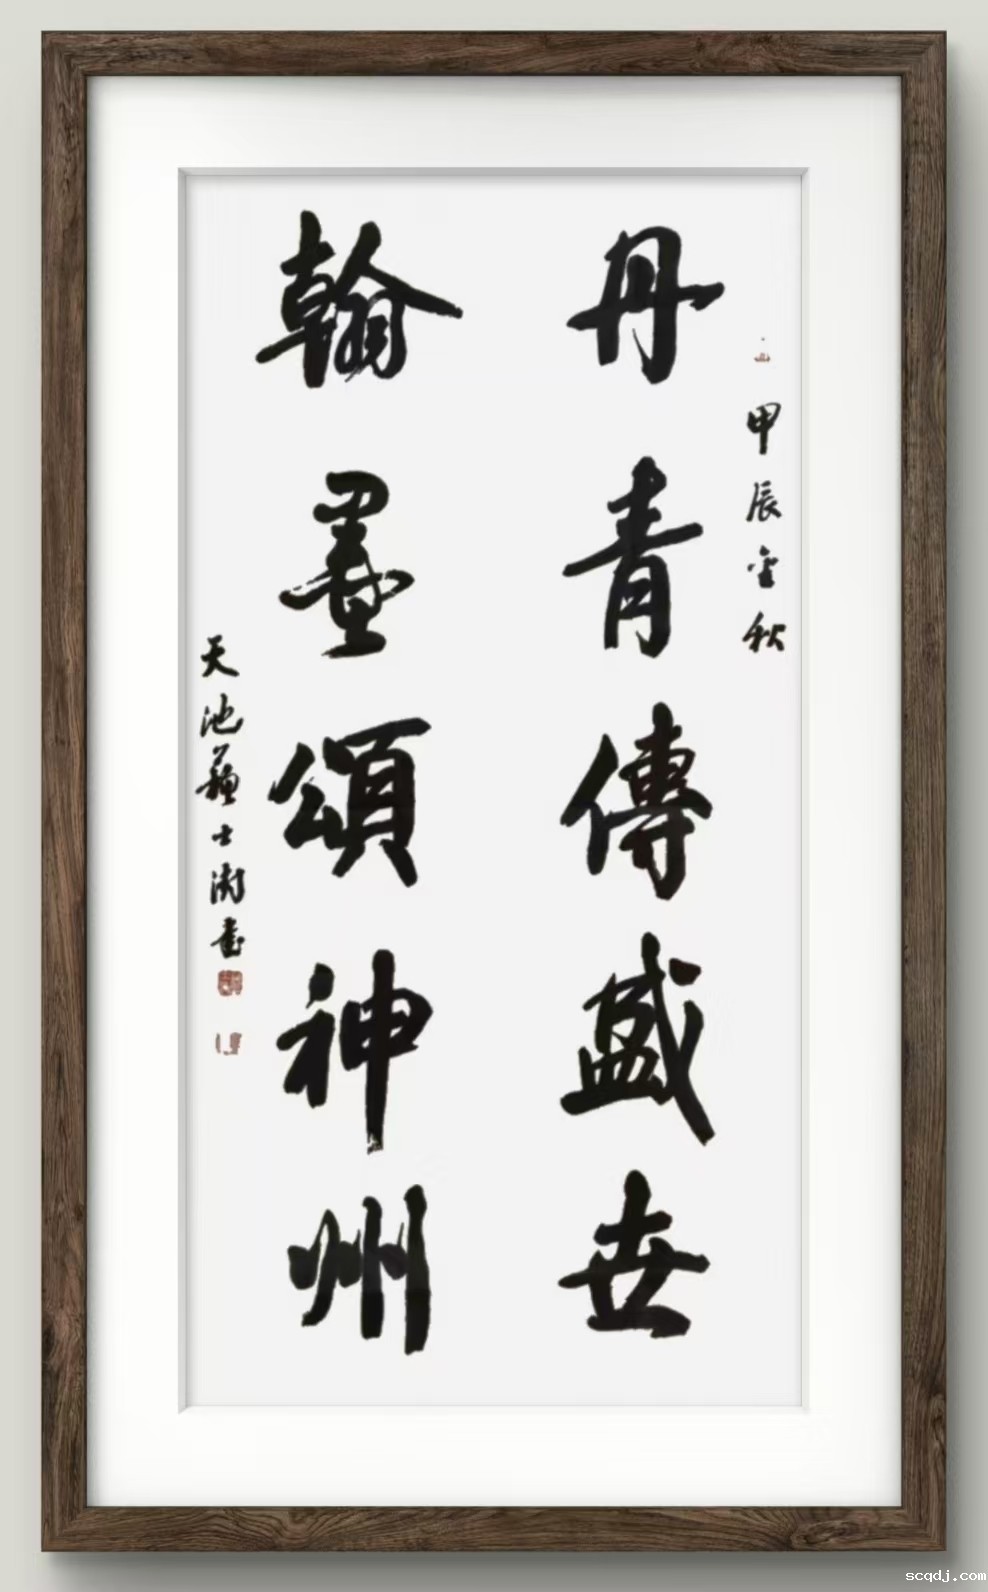 甲辰金秋
丹青傳盛世
翰墨頌神州
天池蘇士澍書
scqdj.com